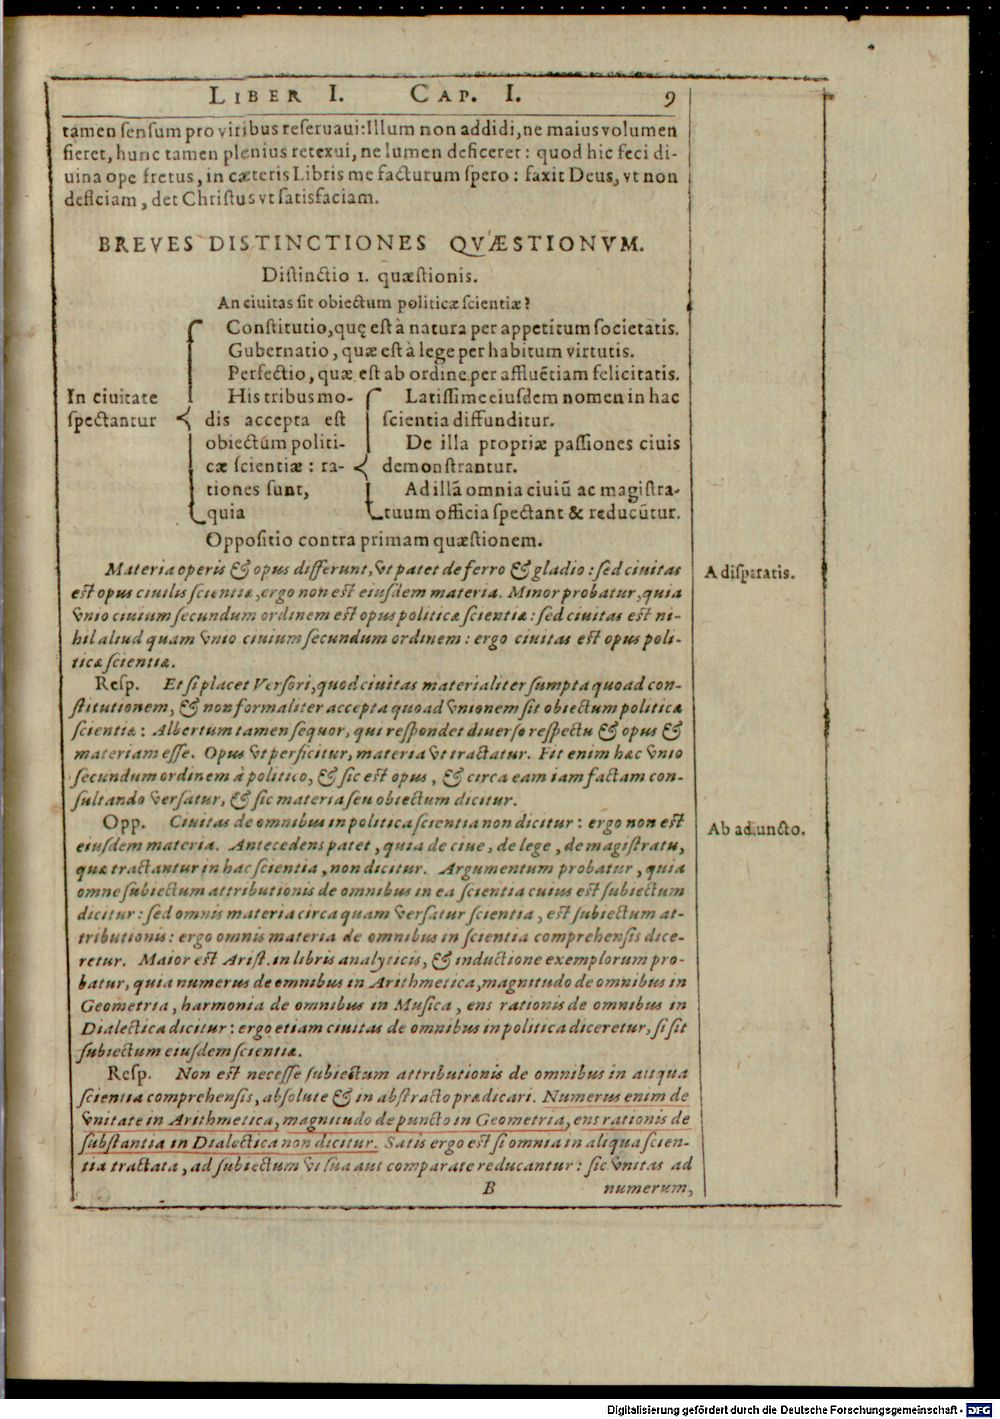 LIBER I. CAP. I. 9
tamen sensum pro viribus reseruaui: Illum non addidi, ne maius volumen
fieret, hunc tamen plenius retexui, ne lumen deficeret: quod hic feci di-
uina ope fretus, in cæteris Libris me facturum spero: faxit Deus, vt non
deficiam, det Christus vt satisfaciam.
BREVES DISTINCTIONES QVÆSTIONVM.
Distinctio 1. quæstionis.
An ciuitas sit obiectum politicæ scientiæ?
In ciuitate
spectantur
Constitutio, quę est à natura per appetitum societatis.
Gubernatio, quæ est à lege per habitum virtutis.
Perfectio, quæ est ab ordine per affluẽtiam felicitatis.
His tribus mo-
dis accepta est
obiectúm politi-
cæ scientiæ: ra-
tiones sunt,
quia
Latissime eiusdem nomen in hac
scientia diffunditur.
De illa propriæ passiones ciuis
demonstrantur.
Ad illã omnia ciuiũ ac magistra-
tuum officia spectant & reducũtur.
Oppositio contra primam quæstionem.
Materia operis & opus differunt, vt patet de ferro & gladio: sed ciuitas
est opus ciuilis scientiæ, ergo non est eiusdem materia. Minor probatur, quia
vnio ciuium secundum ordinem est opus politicæ scientiæ: sed ciuitas est ni-
hil aliud quam vnio ciuium secundum ordinem: ergo ciuitas est opus poli-
ticæ scientiæ.
A disparatis.
Resp. Et si placet Versori, quod ciuitas materialiter sumpta quoad con-
stitutionem, & non formaliter accepta quoad vnionem sit obiectum politicæ
scientiæ: Albertum tamen sequor, qui respondet diuerso respectu & opus &
materiam esse. Opus vt perficitur, materia vt tractatur. Fit enim hæc vnio
secundum ordinem à politico, & sic est opus, & circa eam iam factam con-
sultando versatur, & sic materia seu obiectum dicitur.
Opp. Ciuitas de omnibus in politica scientia non dicitur: ergo non est
eiusdem materia. Antecedens patet, quia de ciue, de lege, de magistratu,
quæ tractantur in hac scientia, non dicitur. Argumentum probatur, quia
omne subiectum attributionis de omnibus in ea scientia cuius est subiectum
dicitur: sed omnis materia circa quam versatur scientia, est subiectum at-
tributionis: ergo omnis materia de omnibus in scientia comprehensis dice-
retur. Maior est Arist. in libris analyticis, & inductione exemplorum pro-
batur, quia numerus de omnibus in Arithmetica, magnitudo de omnibus in
Geometria, harmonia de omnibus in Musica, ens rationis de omnibus in
Dialectica dicitur: ergo etiam ciuitas de omnibus in politica diceretur, si sit
subiectum eiusdem scientiæ.
Ab adiuncto.
Resp. Non est necesse subiectum attributionis de omnibus in aliqua
scientia comprehensis, absolute & in abstracto prædicari. Numerus enim de
vnitate in Arithmetica, magnitudo de puncto in Geometria, ens rationis de
substantia in Dialectica non dicitur. Satis ergo est si omnia in aliqua scien-
tia tractata, ad subiectum vt sua aut comparate reducantur: sic vnitas ad
B numerum,
Digitalisierung gefördert durch die Deutsche Forschungsgemeinschaft - DFG